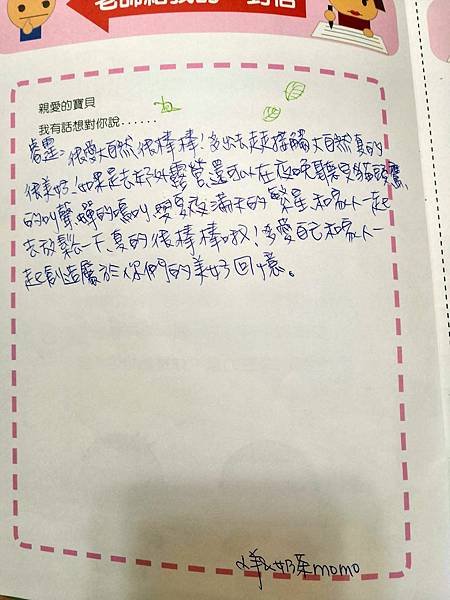 老師給我的一封信
親愛的寶貝
我有話想對你說......
睿霆：很愛大自然很棒棒！多出去走走接觸大自然真的
很美好！如果是去野外露營還可以在夜晚聽見貓頭鷹
的叫聲、蟬的鳴叫、夏夜滿天的繁星、和家人一起
去放鬆一下真的很棒棒呦！多愛自己和家人一
起創造屬於你們的美好回憶。
momo